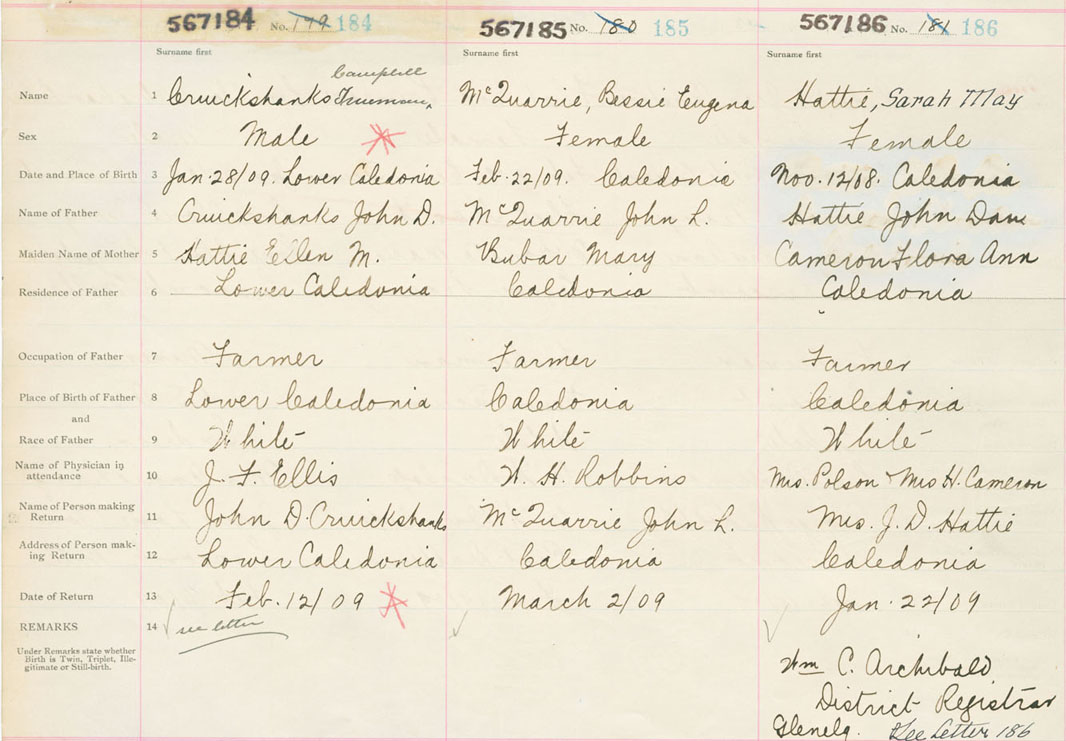 567184 No. 179 184 567185 No. 180 185 567186 No. 181 186
Surname first Surname first Surname first
Campbell
Name 1 Cruickshanks Freeman, McQuarrie, Bessie Eugena Hattie, Sarah May
Sex 2 Male Female Female
Date and Place of Birth 3 Jan. 28/09. Lower Caledonia Feb. 22/09. Caledonia Nov. 12/08. Caledonia
Name of Father 4 Cruickshanks John D. McQuarrie John L. Hattie John Dan
Maiden Name of Mother 5 Hattie Ellen M. Bubar Mary Cameron Flora Ann
Residence of Father 6 Lower Caledonia Caledonia Caledonia
Occupation of Father 7 Farmer Farmer Farmer
Place of Birth of Father 8 Lower Caledonia Caledonia Caledonia
and
Race of Father 9 White White White
Name of Physician in
attendance 10 J. F. Ellis W. H. Robbins Mrs. Polson + Mrs H. Cameron
Name of Person making
Return 11 John D. Cruickshanks McQuarrie John L. Mrs. J. D. Hattie
Address of Person mak-
ing Return 12 Lower Caledonia Caledonia Caledonia
Date of Return 13 Feb. 12/09 March 2/09 Jan. 22/09
REMARKS 14 see letter
Under Remarks state whether
Birth is Twin, Triplet, Ille-
gitimate or Still-birth.
Wm C. Archibald
District Registrar
Glenelg. See Letter 186